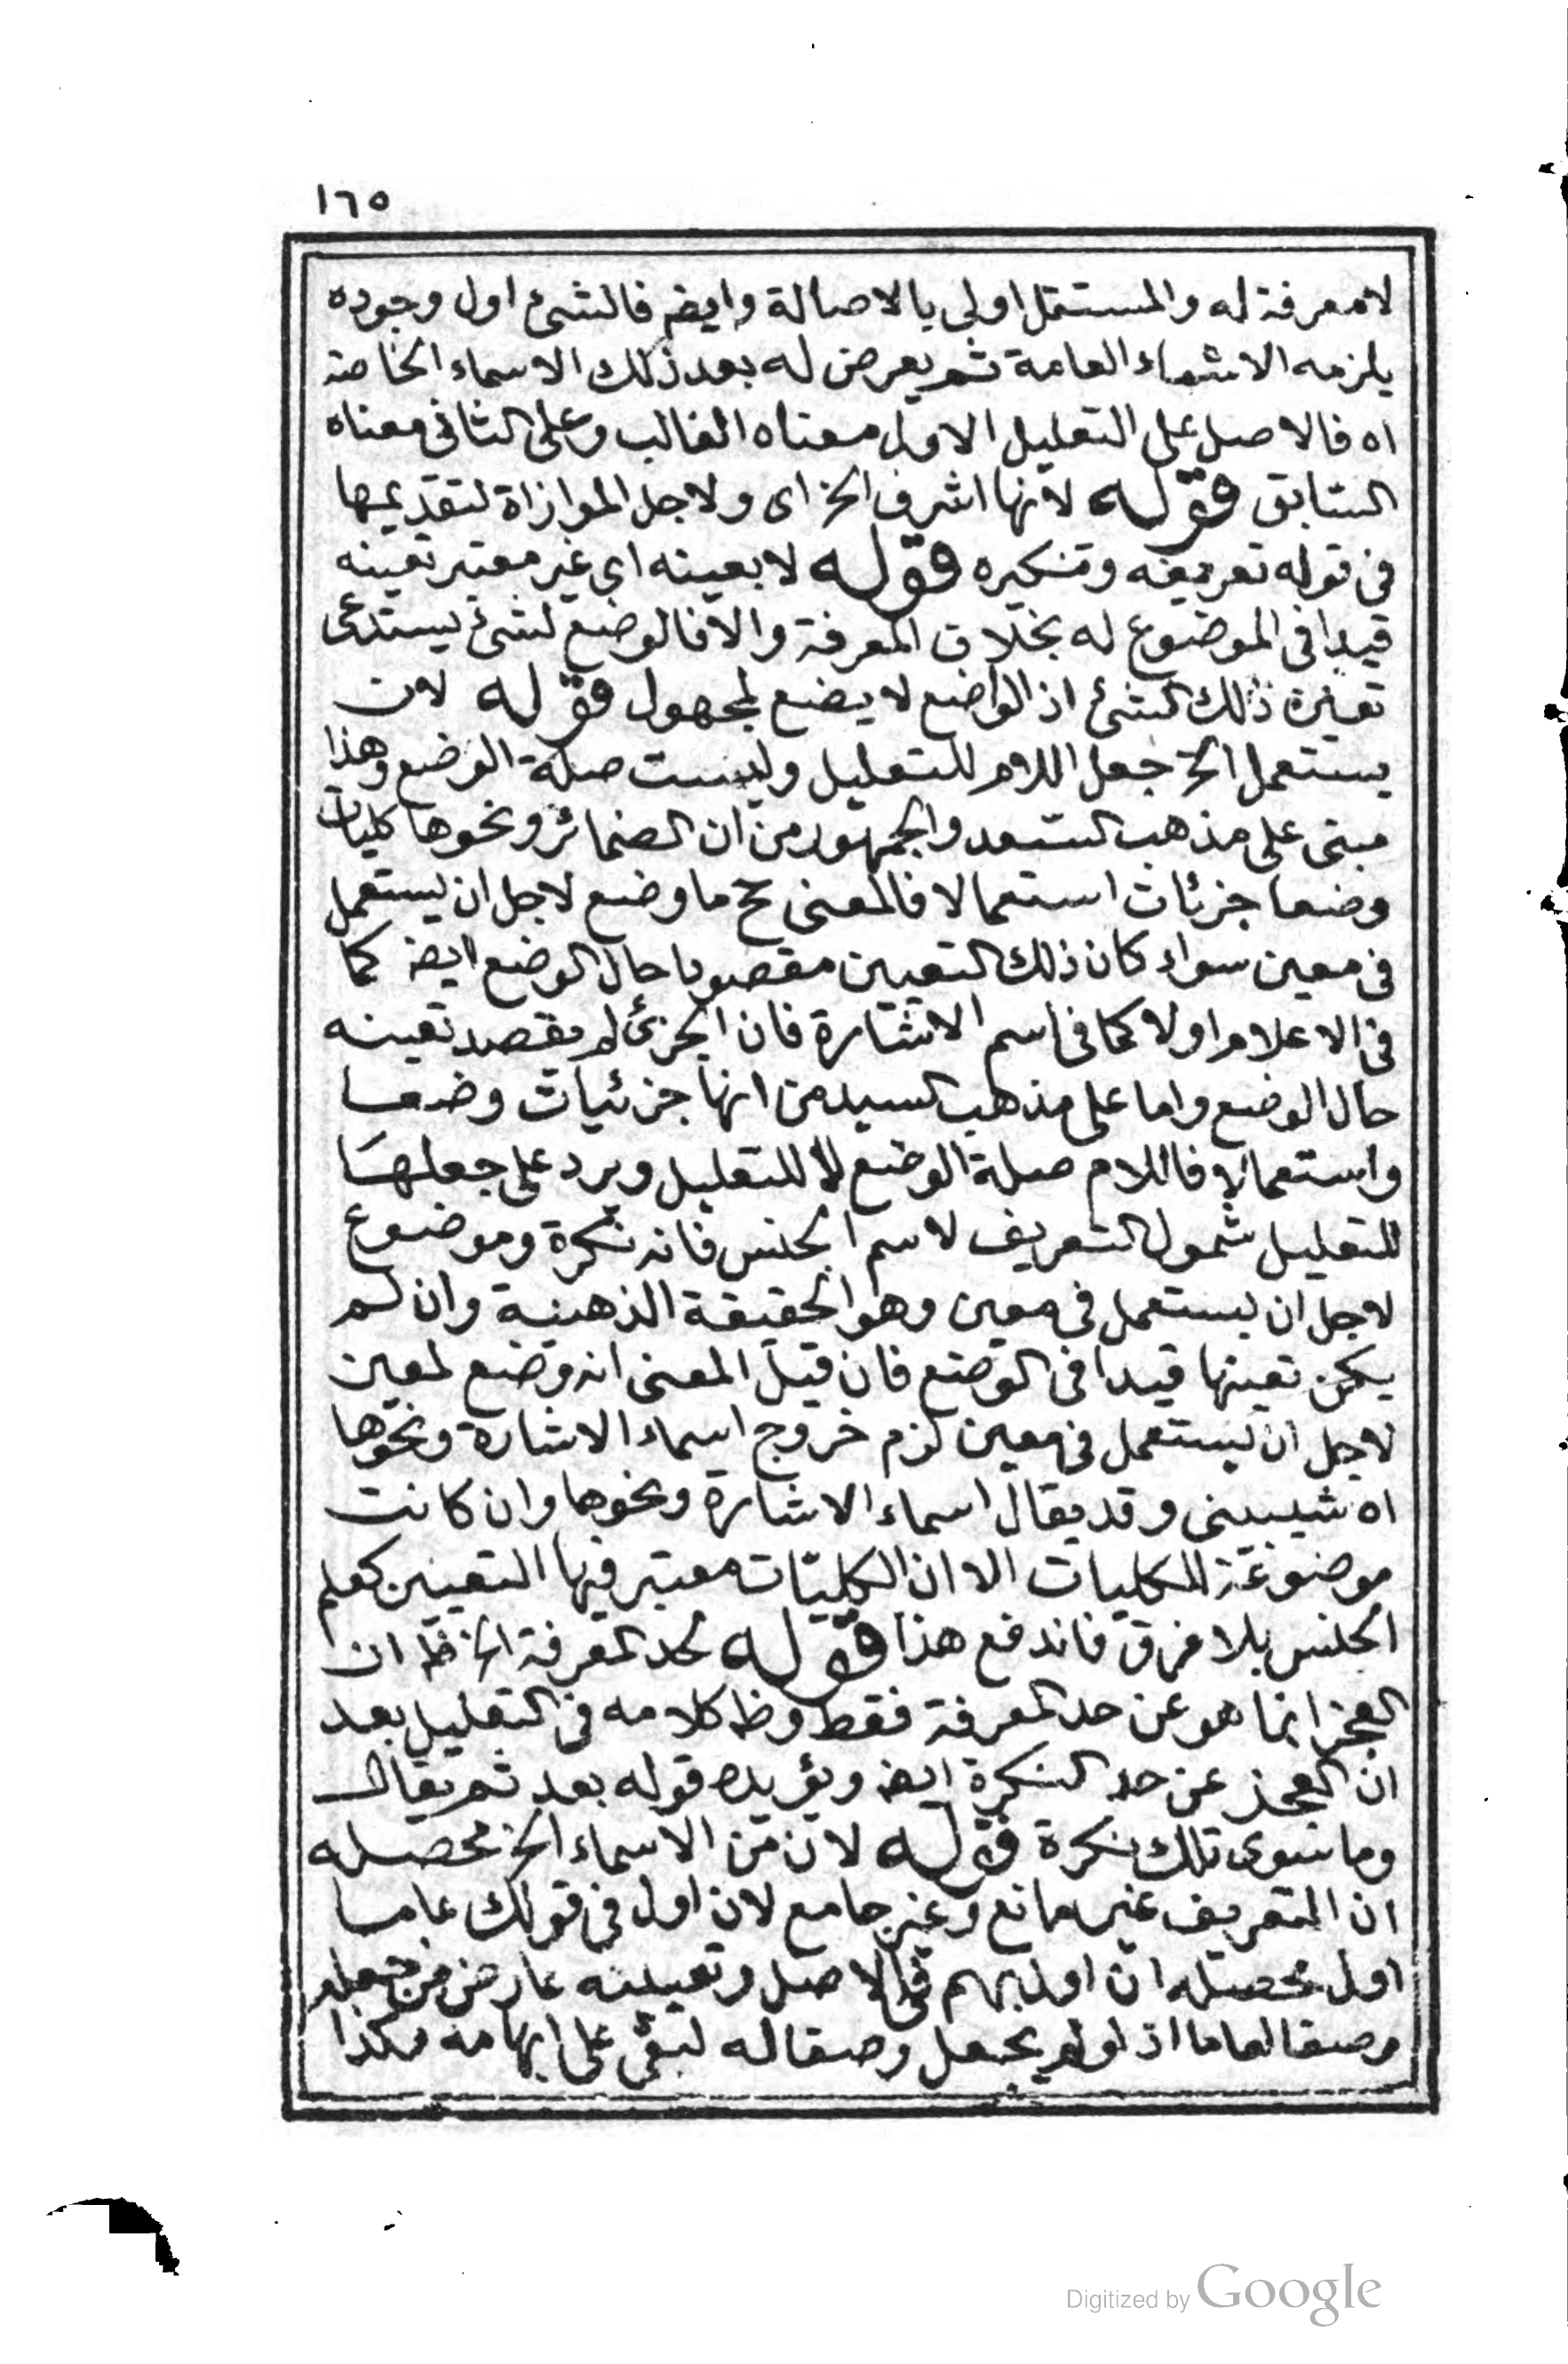 ١٦٥
لا معرفة له والمستقل اولى بالاصالة وايضم فالشئ اول وجوده
يلزمه الاسماء العامة ثم يعرض له بعد ذلك الاسماء الخاصة
اه فالاصل على التعليل الاول معناه الغالب وعلى الثانى معناه
السابق قوله لانها اشرف الخ اى ولاجل الموازاة لتقديمها
فى قوله تعريفه وتنكيره قوله لا بعينه اى غير معتبر تعينه
قيدا فى الموضوع له بخلاف المعرفة والا فالوضع لشئ يستدعى
تعين ذلك الشئ اذ الواضع لا يضع لمجهول قوله لان
يستعمل الخ جعل اللام للتعليل وليست صلة الوضع وهذا
مبنى على مذهب السعد والجمهور من ان الضمائر ونحوها كليات
وضعا جزئات استعمالا فالمعنى ح ما وضع لاجل ان يستعمل
فى معين سواء كان ذلك التعيين مقصودا حال الوضع ايضه كما
فى الاعلام اولا كما فى اسم الاشارة فان الجزئ لم يقصد تعينه
حال الوضع واما على مذهب السيد من انها جزئيات وضعا
واستعمالا فاللام صلة الوضع لا للتعليل ويرد على جعلها
للتعليل شمول التعريف لاسم الجنس فانه نكرة وموضوع
لاجل ان يستعمل فى معين وهو الحقيقة الذهنية وان لم
يكن تعينها قيدا فى الوضع فان قيل المعنى انه وضع لمعين
لاجل ان يستعمل فى معين لزم خروج اسماء الاشارة ونحوها
اه شيبينى وقد يقال اسماء الاشارة ونحوها وان كانت
موضوعة للكليات الا ان الكليات معتبر فيها التعيين كعلم
الجنس بلا فرق فاندفع هذا قوله لحد المعرفة الخ ظ ان
العجز انما هو عن حد المعرفة فقط وظ كلامه فى التعليل بعد
ان العجز عن حد النكرة ايضه ويؤيده قوله بعد ثم يقال
وما سوى تلك نكرة قوله لان من الاسماء الخ محصله
ان التعريف غير مانع وغير جامع لان اول فى قولك عاما
اول محصله ان اول مبهم فى الاصل وتعيينه عارض من جعله
وصفا لعاما اذ لو لم يجعل وصفا له لبقى على ابهامه فكذا
Digitized by Google